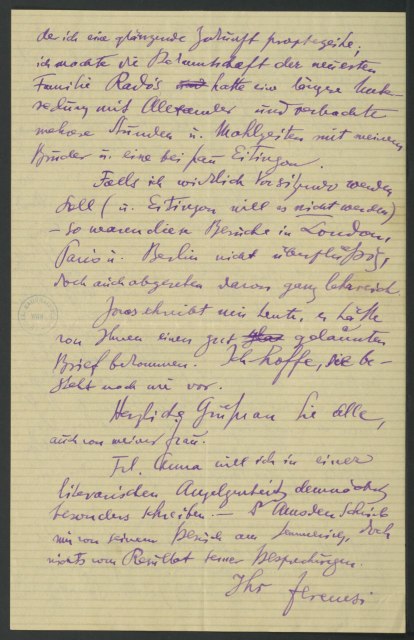 der ich eine glänzende Zukunft prophezeihe;
ich machte die Bekanntschaft der neuesten
Familie Radós hatte eine längere Unter-
redung mit Alexander und verbrachte
mehrere Stunden u. Mahlzeiten mit meinem
Bruder u. eine bei frau Eitingon.
Falls ich wirklich Vorsitzender werden
soll (u. Eitingon will es nicht werden)
– so waren diese Besuche in London,
Paris u. Berlin nicht überflüssig,
doch auch abgesehen davon ganz lehrreich
Jones schreibt mir heute, er hätte
von Ihnen einen gut gelaunten
Brief bekommen. Ich hoffe, sie be-
steht nach wie vor.
Herzliche Grüße an Sie alle,
auch von meiner frau.
Frl. Anna will ich in einer
literarischen Angelegenheit demnächst
besonders schreiben. – Amsden schrieb
mir von seinem Besuch am Semmering, doch
nichts vom Resultat seiner Besprechungen.
Ihr Ferenczi